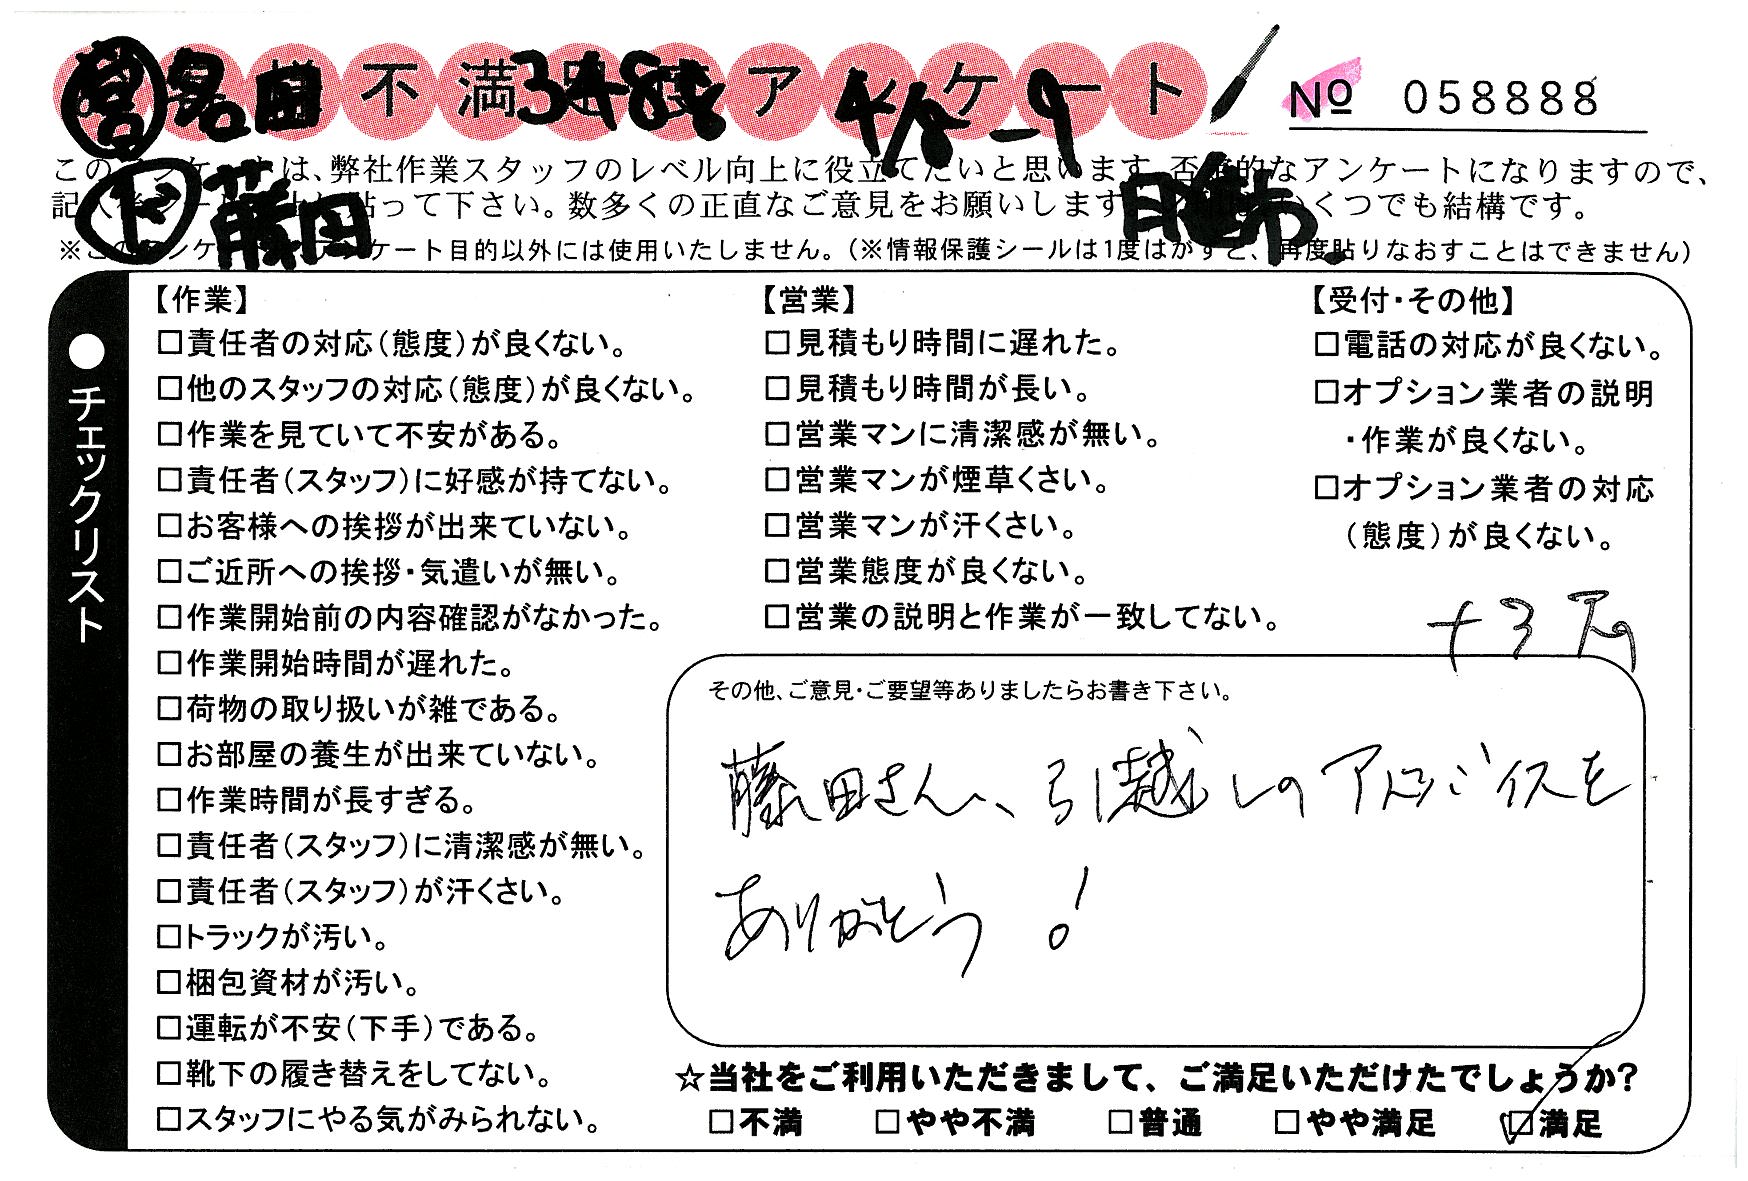 不満 アケート
No 058888
営 名田 3488 4/8-9
この は、弊社作業スタッフのレベル向上に役立てたいと思います。否定的なアンケートになりますので、
記入 貼って下さい。数多くの正直なご意見をお願いします くつでも結構です。
下 藤田
※このアンケ アンケート目的以外には使用いたしません。(※情報保護シールは1度はがすと、再度貼りなおすことはできません)
●チェックリスト
【作業】
□責任者の対応(態度)が良くない。
□他のスタッフの対応(態度)が良くない。
□作業を見ていて不安がある。
□責任者(スタッフ)に好感が持てない。
□お客様への挨拶が出来ていない。
□ご近所への挨拶・気遣いが無い。
□作業開始前の内容確認がなかった。
□作業開始時間が遅れた。
□荷物の取り扱いが雑である。
□お部屋の養生が出来ていない。
□作業時間が長すぎる。
□責任者(スタッフ)に清潔感が無い。
□責任者(スタッフ)が汗くさい。
□トラックが汚い。
□梱包資材が汚い。
□運転が不安(下手)である。
□靴下の履き替えをしてない。
□スタッフにやる気がみられない。
【営業】
□見積もり時間に遅れた。
□見積もり時間が長い。
□営業マンに清潔感が無い。
□営業マンが煙草くさい。
□営業マンが汗くさい。
□営業態度が良くない。
□営業の説明と作業が一致してない。
【受付・その他】
□電話の対応が良くない。
□オプション業者の説明
・作業が良くない。
□オプション業者の対応
(態度)が良くない。
その他、ご意見・ご要望等ありましたらお書き下さい。
藤田さん、引越しのアドバイスを
ありがとう!
☆当社をご利用いただきまして、ご満足いただけたでしょうか?
□不満 □やや不満 □普通 □やや満足 ☑満足